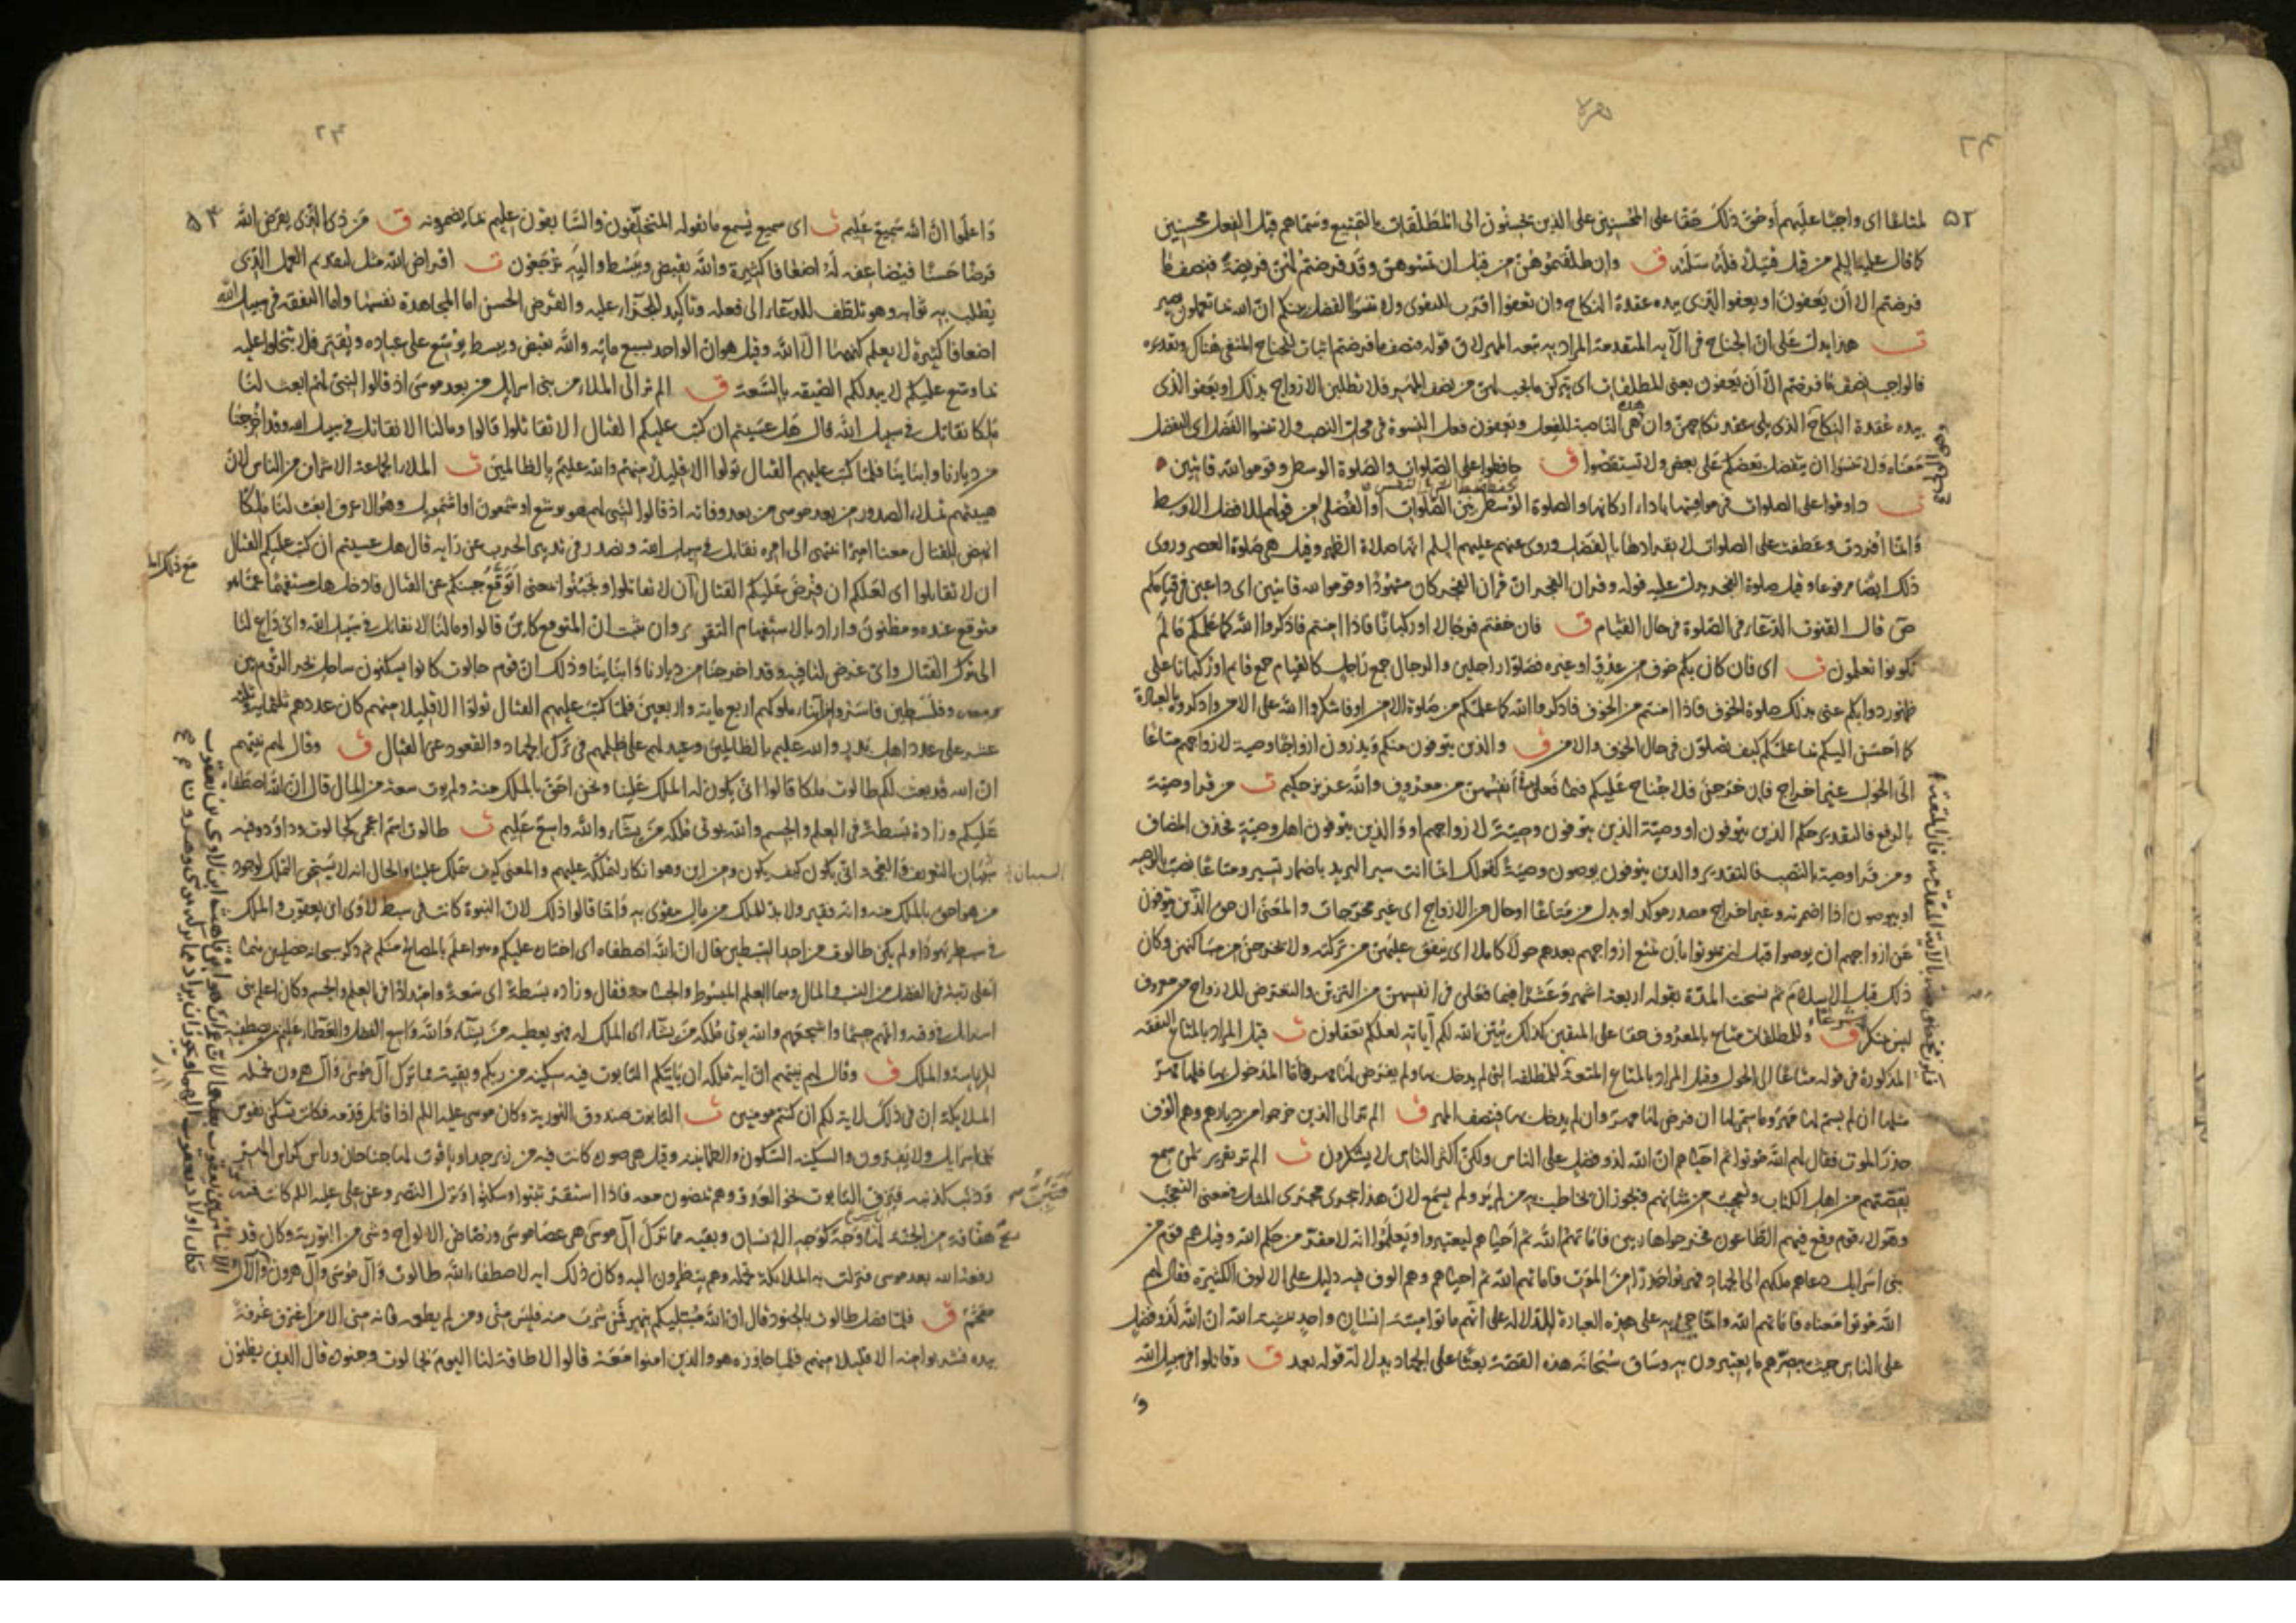 بقرة
٢٤
٥٢
لمتاعا اى واجبًا عليهم أو حق ذلك حقا على المحسنين على الذين يحسنون الى المطلقات بالتمتيع وسماهم قبل الفعل محسنين
كما قال عليه السلم من قتل قتيلا فله سلبه ق وان طلقتموهن من قبل ان تمسوهن وقد فرضتم لهن فريضة فنصف ما
فرضتم الا أن يعفون او يعفوا الذى بيده عقدة النكاح وان تعفوا اقرب للتقوى ولا تنسوا الفضل بينكم ان الله بما تعملون بصير
ت هذا يدل على ان الجناح فى الآية المتقدمة المراد به تبعة المهر لان قوله فنصف ما فرضتم اثبات للجناح المنفى هناك وتقديره
فالواجب نصف ما فرضتم الا أن يعفون يعنى المطلقات اى يتركن ما يجب لهن من نصف المهر فلا يطلبن الازواج بذلك او يعفو الذى
بيده عقدة النكاح الذى يلى عقد نكاحهن وان هى الناصبة للفعل ويعفون فعل النسوة فى محل النصب ولا تنسوا الفضل اى التفضل
معناه ولا تنسوا ان يتفضل بعضكم على بعض ولا تستقصوا ق حافظوا على الصلوات والصلوة الوسطى وقوموا لله قانتين
ت داوموا على الصلوات فى مواقيتها باداء اركانها والصلوة الوسطى بين الصلوات او الفضلى من قولهم للافضل الاوسط
وانما افردت وعطفت على الصلوات لانفرادها بالفضل وروى عنهم عليهم السلم انها صلاة الظهر وقيل هى صلوة العصر وروى
ذلك ايضا مرفوعا وقيل صلوة الفجر يدل عليه قوله وقران الفجر ان قران الفجر كان مشهودا وقوموا لله قانتين اى داعين فى قيامكم
ص قال القنوت الدعاء فى الصلوة فى حال القيام ق فان خفتم فرجالا او ركبانا فاذا امنتم فاذكروا الله كما علمكم ما لم
تكونوا تعلمون ت اى فان كان بكم خوف من عدو او غيره فصلوا راجلين والرجال جمع راجل كالقيام جمع قائم او ركبانا على
ظهور دوابكم عنى بذلك صلوة الخوف فاذا امنتم من الخوف فاذكروا الله كما علمكم من صلوة الامن او فاشكروا الله على الامن واذكروه بالعبادة
كما احسن اليكم بما علمكم كيف تصلون فى حال الخوف والامن ق والذين يتوفون منكم ويذرون ازواجا وصية لازواجهم متاعا
الى الحول غير اخراج فان خرجن فلا جناح عليكم فيما فعلن فى أنفسهن من معروف والله عزيز حكيم ت من قرا وصية
بالرفع فالتقدير حكم الذين يتوفون او وصية الذين يتوفون وصية لازواجهم او والذين يتوفون اهل وصية فحذف المضاف
ومن قرا وصية بالنصب فالتقدير والذين يتوفون يوصون وصية كقولك انما انت سير البريد باضمار تسير ومتاعا نصب بالوصية
او بيوصون اذا اضمرته وغير اخراج مصدر موكد او بدل من متاعا او حال من الازواج اى غير مخرجات والمعنى ان حق الذين يتوفون
عن ازواجهم ان يوصوا قبل ان يموتوا بان تمتع ازواجهم بعدهم حولا كاملا اى ينفق عليهن من تركته ولا يخرجن من مساكنهن وكان
ذلك قبل الاسلام ثم نسخت المدة بقوله اربعة اشهر وعشرا فيما فعلن فى انفسهن من التزين والتعرض للازواج من معروف
ليس بمنكر شرعا ق وللمطلقات متاع بالمعروف حقا على المتقين كذلك يبين الله لكم آياته لعلكم تعقلون ت قيل المراد بالمتاع النفقة
المذكورة فى قوله متاعا الى الحول وقيل المراد بالمتاع المتعة للمطلقة التى لم يدخل بها ولم يفرض لها مهر فاما المدخول بها فلها مهر
مثلها ان لم يسم لها مهر وما سمى لها ان فرض لها مهر وان لم يدخل بها فنصف المهر ق الم تر الى الذين خرجوا من ديارهم وهم الوف
حذر الموت فقال لهم الله موتوا ثم احياهم ان الله لذو فضل على الناس ولكن اكثر الناس لا يشكرون ت الم تر تقرير لمن سمع
بقصتهم من اهل الكتاب وتعجيب من شانهم فيجوز ان يخاطب به من لم ير ولم يسمع لان هذا جرى مجرى المثل فى معنى التعجيب
وهؤلاء قوم وقع فيهم الطاعون فخرجوا هاربين فاماتهم الله ثم أحياهم ليعتبروا ويعلموا انه لا مفر من حكم الله وقيل هم قوم من
بنى اسرايل دعاهم ملكهم الى الجهاد فهربوا حذرا من الموت فاماتهم الله ثم احياهم وهم الوف فيه دليل على الالوف الكثيرة فقال لهم
الله موتوا معناه فاماتهم الله وانما جىء به على هذه العبارة للدلالة على انهم ماتوا ميتة انسان واحد بمشيئة الله ان الله لذو فضل
على الناس حيث يبصرهم ما يعتبرون به وساق سبحانه هذه القصة بعثا على الجهاد بدلالة قوله بعد ق وقاتلوا فى سبيل الله
و
٢٣
٥٣
واعلموا ان الله سميع عليم ت اى سميع يسمع ما يقوله المتخلفون والسابقون عليم بما يضمرونه ق من ذى الذى يقرض الله
قرضا حسنا فيضاعفه له اضعافا كثيرة والله يقبض ويبسط واليه ترجعون ت اقراض الله مثل لتقديم العمل الذى
يطلب به ثوابه وهو تلطف للدعاء الى فعله وتاكيد للجزاء عليه والقرض الحسن اما المجاهدة نفسها واما النفقة فى سبيل الله
اضعافا كثيرة لا يعلم كنهها الا الله وقيل هو ان الواحد بسبع مائه والله يقبض ويبسط يوسع على عباده ويقتر فلا تبخلوا عليه
بما وسع عليكم لا يبدلكم الضيقة بالسعة ق الم تر الى الملاء من بنى اسرايل من بعد موسى اذ قالوا لنبى لهم ابعث لنا
ملكا نقاتل فى سبيل الله قال هل عسيتم ان كتب عليكم القتال الا تقاتلوا قالوا وما لنا الا نقاتل فى سبيل الله وقد اخرجنا
من ديارنا وابنائنا فلما كتب عليهم القتال تولوا الا قليلا منهم والله عليم بالظالمين ت الملاء الجماعة الاشراف من الناس لان
هيبتهم تملاء الصدور من بعد موسى من بعد وفاته اذ قالوا لنبى لهم هو يوشع او شمعون او اشمويل وهو الاعرف ابعث لنا ملكا
انهض للقتال معنا اميرا ننتهى الى امره نقاتل فى سبيل الله ونصدر فى تدبير الحرب عن رايه قال هل عسيتم ان كتب عليكم القتال
ان لا تقاتلوا اى لعلكم ان فرض عليكم القتال أن لا تقاتلوا وتجبنوا بمعنى اتوقع جبنكم عن القتال فادخل هل مستفهما عما هو
متوقع عنده ومظنون واراد بالاستفهام التقرير وان ثبت ان المتوقع كاين قالوا وما لنا الا نقاتل فى سبيل الله واى داع لنا
الى ترك القتال واى غرض لنا فيه وقد اخرجنا من ديارنا وابنائنا وذلك ان قوم جالوت كانوا يسكنون ساحل بحر الروم بين
مصر وفلسطين فاسروا من ابناء ملوكهم اربع مايه واربعين فلما كتب عليهم القتال تولوا الا قليلا منهم كان عددهم ثلثمايه وثلثة
عشر على عدد اهل بدر والله عليم بالظالمين وعيد لهم على ظلمهم فى ترك الجهاد والقعود عن القتال ق وقال لهم نبيهم
ان الله قد بعث لكم طالوت ملكا قالوا انى يكون له الملك علينا ونحن احق بالملك منه ولم يوت سعة من المال قال ان الله اصطفاه
عليكم وزاده بسطة فى العلم والجسم والله يوتى ملكه من يشاء والله واسع عليم ت طالوت اسم اعجمى كجالوت وداود وفيه
سببان التعريف والعجمة وانى يكون كيف يكون ومن اين وهو انكار لتملكه عليهم والمعنى كيف يتملك علينا والحال انه لا يستحق التملك لوجود
من هو احق بالملك منه وانه فقير ولا بد للملك من مال يتقوى به وانما قالوا ذلك لان النبوة كانت فى سبط لاوى ابن يعقوب والملك
فى سبط يهودا ولم يكن طالوت من احد السبطين قال ان الله اصطفاه اى اختاره عليكم وهو اعلم بالمصالح منكم ثم ذكر سبحانه خصلتين هما
اعلى رتبة فى الفضل من النسب والمال وهما العلم المبسوط والجسامة فقال وزاده بسطة اى سعة وامتدادا فى العلم والجسم وكان اعلم بنى
اسرائيل فى وقته واتمهم جسما واشجعهم والله يوتى ملكه من يشاء اى الملك له فهو يعطيه من يشاء والله واسع الفضل والعطاء عليم بمن يصطفيه
للرياسة والملك ق وقال لهم نبيهم ان اية ملكه ان يأتيكم التابوت فيه سكينة من ربكم وبقية مما ترك آل موسى وآل هرون تحمله
الملايكة إن فى ذلك لاية لكم ان كنتم مومنين ت التابوت صندوق التورية وكان موسى عليه السلم اذا قاتل قدمه فكانت تسكن نفوس
بنى اسرايل ولا يفرون والسكينة السكون والطمانينة وقيل هى صورة كانت فيه من زبرجد او ياقوت لها جناحان وراس كراس الهر
وذنب كذنبه فيزف التابوت نحو العدو وهم يمضون معه فاذا استقر ثبتوا وسكنوا ونزل النصر وعن على عليه السلم كانت فيه
ريح هفافة من الجنة لها وجه كوجه الانسان وبقية مما ترك آل موسى هى عصا موسى ورضاض الالواح وشى من التورية وكان قد
رفعه الله بعد موسى فنزلت به الملايكة تحمله وهم ينظرون اليه وكان ذلك اية لاصطفاء الله طالوت وآل موسى وآل هرون والآل
مقحم ق فلما فصل طالوت بالجنود قال ان الله مبتليكم بنهر فمن شرب منه فليس منى ومن لم يطعمه فانه منى الا من اغترف غرفة
بيده فشربوا منه الا قليلا منهم فلما جاوزه هو والذين امنوا معه قالوا لا طاقة لنا اليوم بجالوت وجنوده قال الذين يظنون